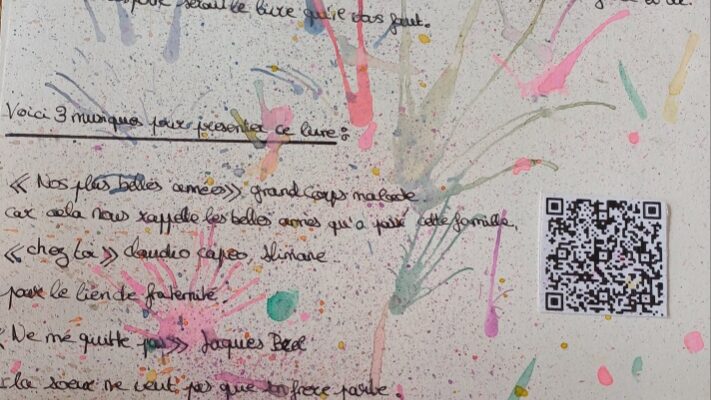 serait le livre qu'il vous faut.
Voici 3 musiques pour presenter ce livre :
« Nos plus belles années » grand corps malade.
car cela nous rappelle les belles années qu'a passé cette famille,
« chez toi » claudio capeo, slimane
pour le lien de fraternité.
« Ne me quitte pas » Jaques Brel
la soeur ne veut pas que son frere parte.